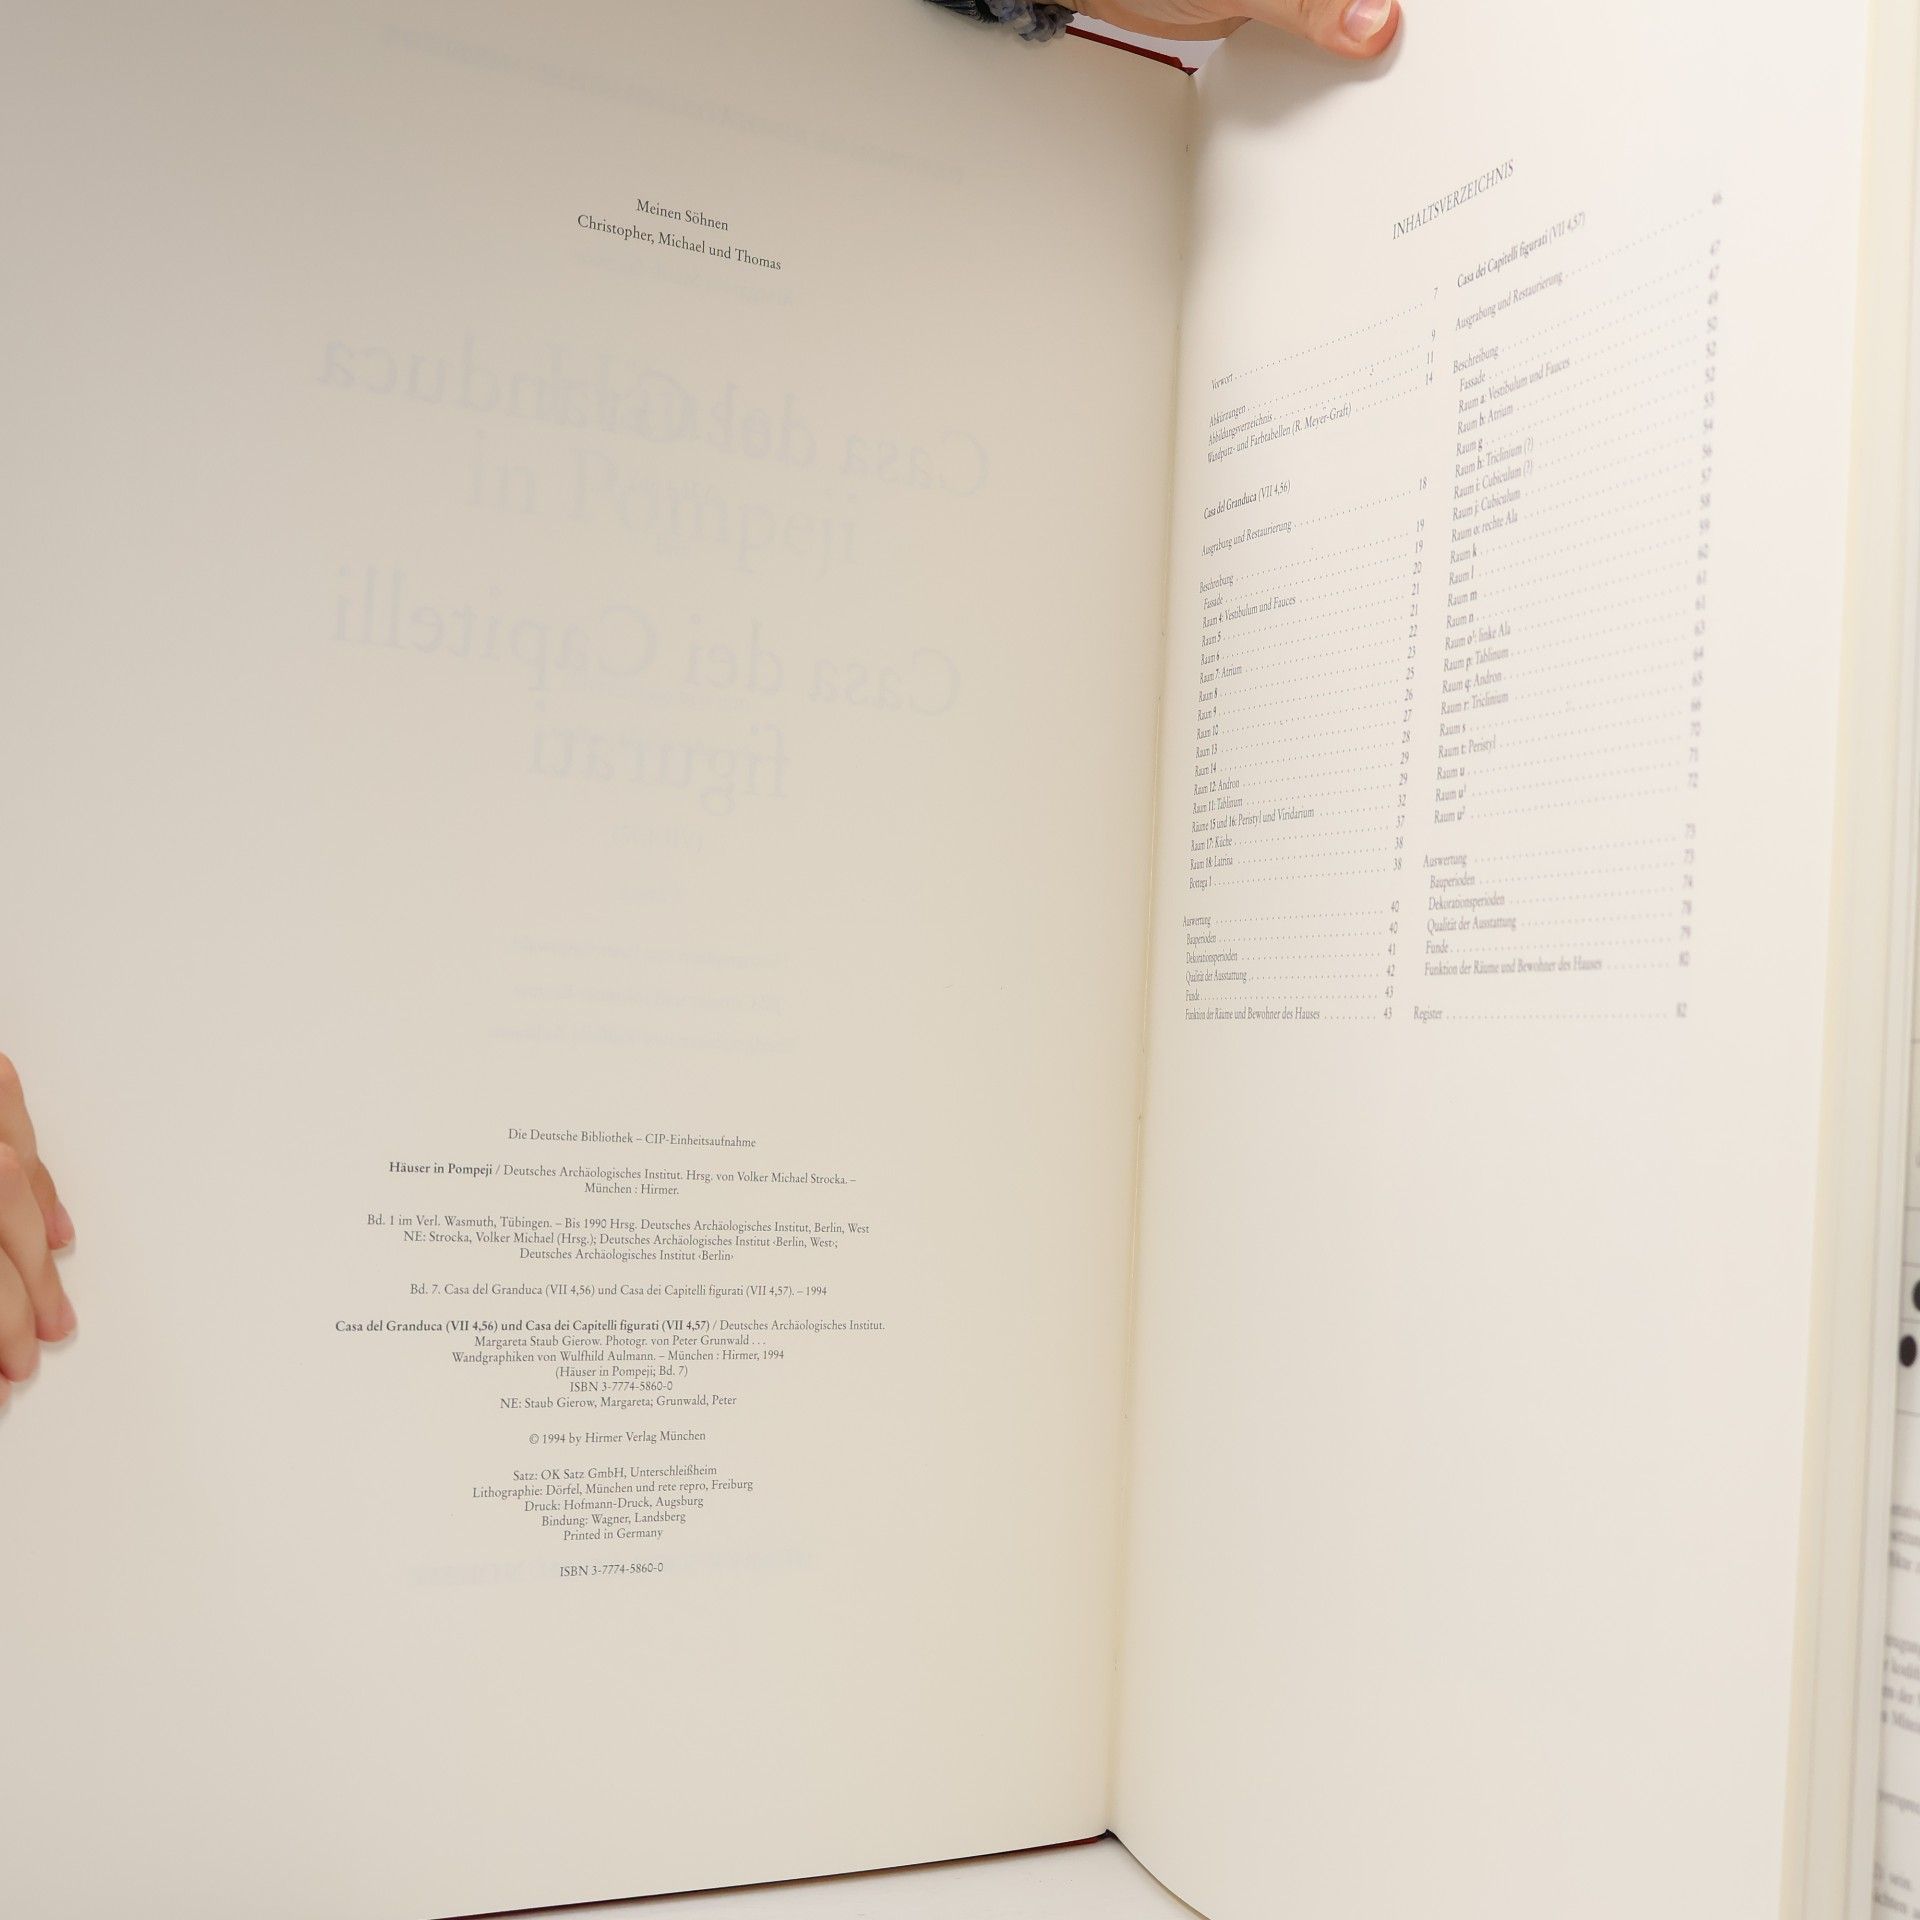 Meinen Söhnen
Christopher, Michael und Thomas
Die Deutsche Bibliothek – CIP-Einheitsaufnahme
Häuser in Pompeji / Deutsches Archäologisches Institut. Hrsg. von Volker Michael Strocka. –
München : Hirmer.
Bd. 1 im Verl. Wasmuth, Tübingen. – Bis 1990 Hrsg. Deutsches Archäologisches Institut, Berlin, West
NE: Strocka, Volker Michael (Hrsg.); Deutsches Archäologisches Institut ‹Berlin, West›;
Deutsches Archäologisches Institut ‹Berlin›
Bd. 7. Casa del Granduca (VII 4,56) und Casa dei Capitelli figurati (VII 4,57). – 1994
Casa del Granduca (VII 4,56) und Casa dei Capitelli figurati (VII 4,57) / Deutsches Archäologisches Institut.
Margareta Staub Gierow. Photogr. von Peter Grunwald . . .
Wandgraphiken von Wulfhild Aulmann. – München : Hirmer, 1994
(Häuser in Pompeji; Bd. 7)
ISBN 3-7774-5860-0
NE: Staub Gierow, Margareta; Grunwald, Peter
© 1994 by Hirmer Verlag München
Satz: OK Satz GmbH, Unterschleißheim
Lithographie: Dörfel, München und rete repro, Freiburg
Druck: Hofmann-Druck, Augsburg
Bindung: Wagner, Landsberg
Printed in Germany
ISBN 3-7774-5860-0
INHALTSVERZEICHNIS
Vorwort 7
Abkürzungen 9
Abbildungsverzeichnis 11
Wandputz- und Farbtabellen (R. Meyer-Graft) 14
Casa del Granduca (VII 4,56)
Ausgrabung und Restaurierung 18
Beschreibung 19
Fassade 19
Raum 4: Vestibulum und Fauces 20
Raum 5 21
Raum 6 21
Raum 7: Atrium 22
Raum 8 23
Raum 9 25
Raum 10 26
Raum 13 27
Raum 14 28
Raum 12: Andron 29
Raum 11: Tablinum 29
Räume 15 und 16: Peristyl und Viridarium 32
Raum 17: Küche 37
Raum 18: Latrina 38
Bottega 1 38
Auswertung 40
Bauperioden 40
Dekorationsperioden 41
Qualität der Ausstattung 42
Funde 43
Funktion der Räume und Bewohner des Hauses 43
Casa dei Capitelli figurati (VII 4,57)
Ausgrabung und Restaurierung 46
Beschreibung 47
Fassade 47
Raum a: Vestibulum und Fauces 49
Raum b: Atrium 50
Raum g 52
Raum h: Triclinium (?) 52
Raum i: Cubiculum (?) 53
Raum j: Cubiculum 54
Raum o: rechte Ala 56
Raum k 57
Raum l 58
Raum m
Raum n
Raum o¹: linke Ala 61
Raum p: Tablinum 61
Raum q: Andron 63
Raum r: Triclinium 64
Raum s 65
Raum t: Peristyl 66
Raum u 70
Raum u¹ 71
Raum u² 72
Auswertung 73
Bauperioden 73
Dekorationsperioden 74
Qualität der Ausstattung 78
Funde 79
Funktion der Räume und Bewohner des Hauses 80
Register 82